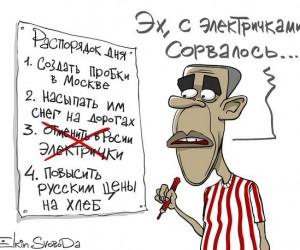 Распорядок дня
1. Создать пробки
в Москве
2. Насыпать им
снег на дорогах
3. Отменить в России
электрички
4. Повысить
русским цены
на хлеб
Эх, с электричками
сорвалось...
Elkin Svoboda